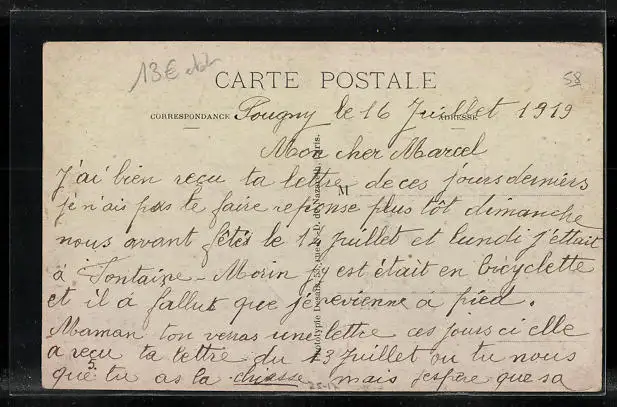 13€
58
CARTE POSTALE
CORRESPONDANCE
ADRESSE
Pougny le 16 Juillet 1919
Mon cher Marcel
J'ai bien reçu ta lettre de ces jours derniers
je n'ais pas te faire reponse plus tôt dimanche
nous avant fêtés le 14 Juillet et lundi j'ettait
à Fontaine-Morin j'y est était en bicyclette
et il à fallut que je revienne à pied.
Maman ton verras une lettre ces jours ci elle
a reçu ta lettre du 13 Juillet ou tu nous
que tu as la chiasse mais j'espère que sa
M
Phototypie Desaix, rue N.-D. de Nazareth, Paris.
5.